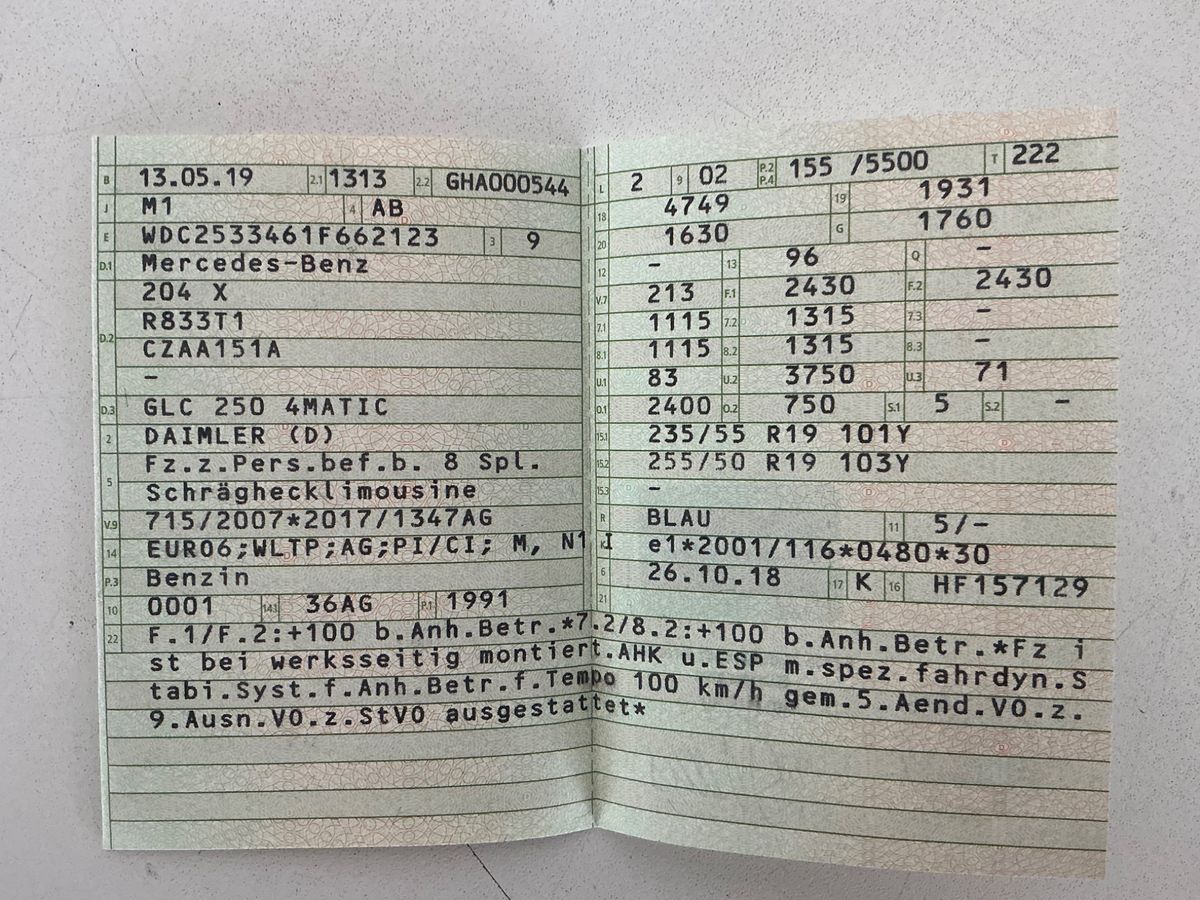 B 13.05.19 2.1 1313 2.2 GHA000544
J M1 4 AB
E WDC2533461F662123 3 9
D.1 Mercedes-Benz
204 X
D.2 R833T1
CZAA151A
–
D.3 GLC 250 4MATIC
2 DAIMLER (D)
Fz.z.Pers.bef.b. 8 Spl.
5 Schräghecklimousine
V.9 715/2007*2017/1347AG
14 EURO6;WLTP;AG;PI/CI; M, N1 I
P.3 Benzin
10 0001 14.1 36AG P.1 1991
L 2 9 02 P.2 P.4 155 /5500 T 222
18 4749 19 1931
20 1630 G 1760
12 – 13 96 Q –
V.7 213 F.1 2430 F.2 2430
7.1 1115 7.2 1315 7.3 –
8.1 1115 8.2 1315 8.3 –
U.1 83 U.2 3750 U.3 71
O.1 2400 O.2 750 S.1 5 S.2 –
15.1 235/55 R19 101Y
15.2 255/50 R19 103Y
15.3 –
R BLAU 11 5/–
K e1*2001/116*0480*30
6 26.10.18 17 K 16 HF157129
21
22 F.1/F.2:+100 b.Anh.Betr.*7.2/8.2:+100 b.Anh.Betr.*Fz i
st bei werksseitig montiert.AHK u.ESP m.spez.fahrdyn.S
tabi.Syst.f.Anh.Betr.f.Tempo 100 km/h gem.5.Aend.VO.z.
9.Ausn.VO.z.StVO ausgestattet*